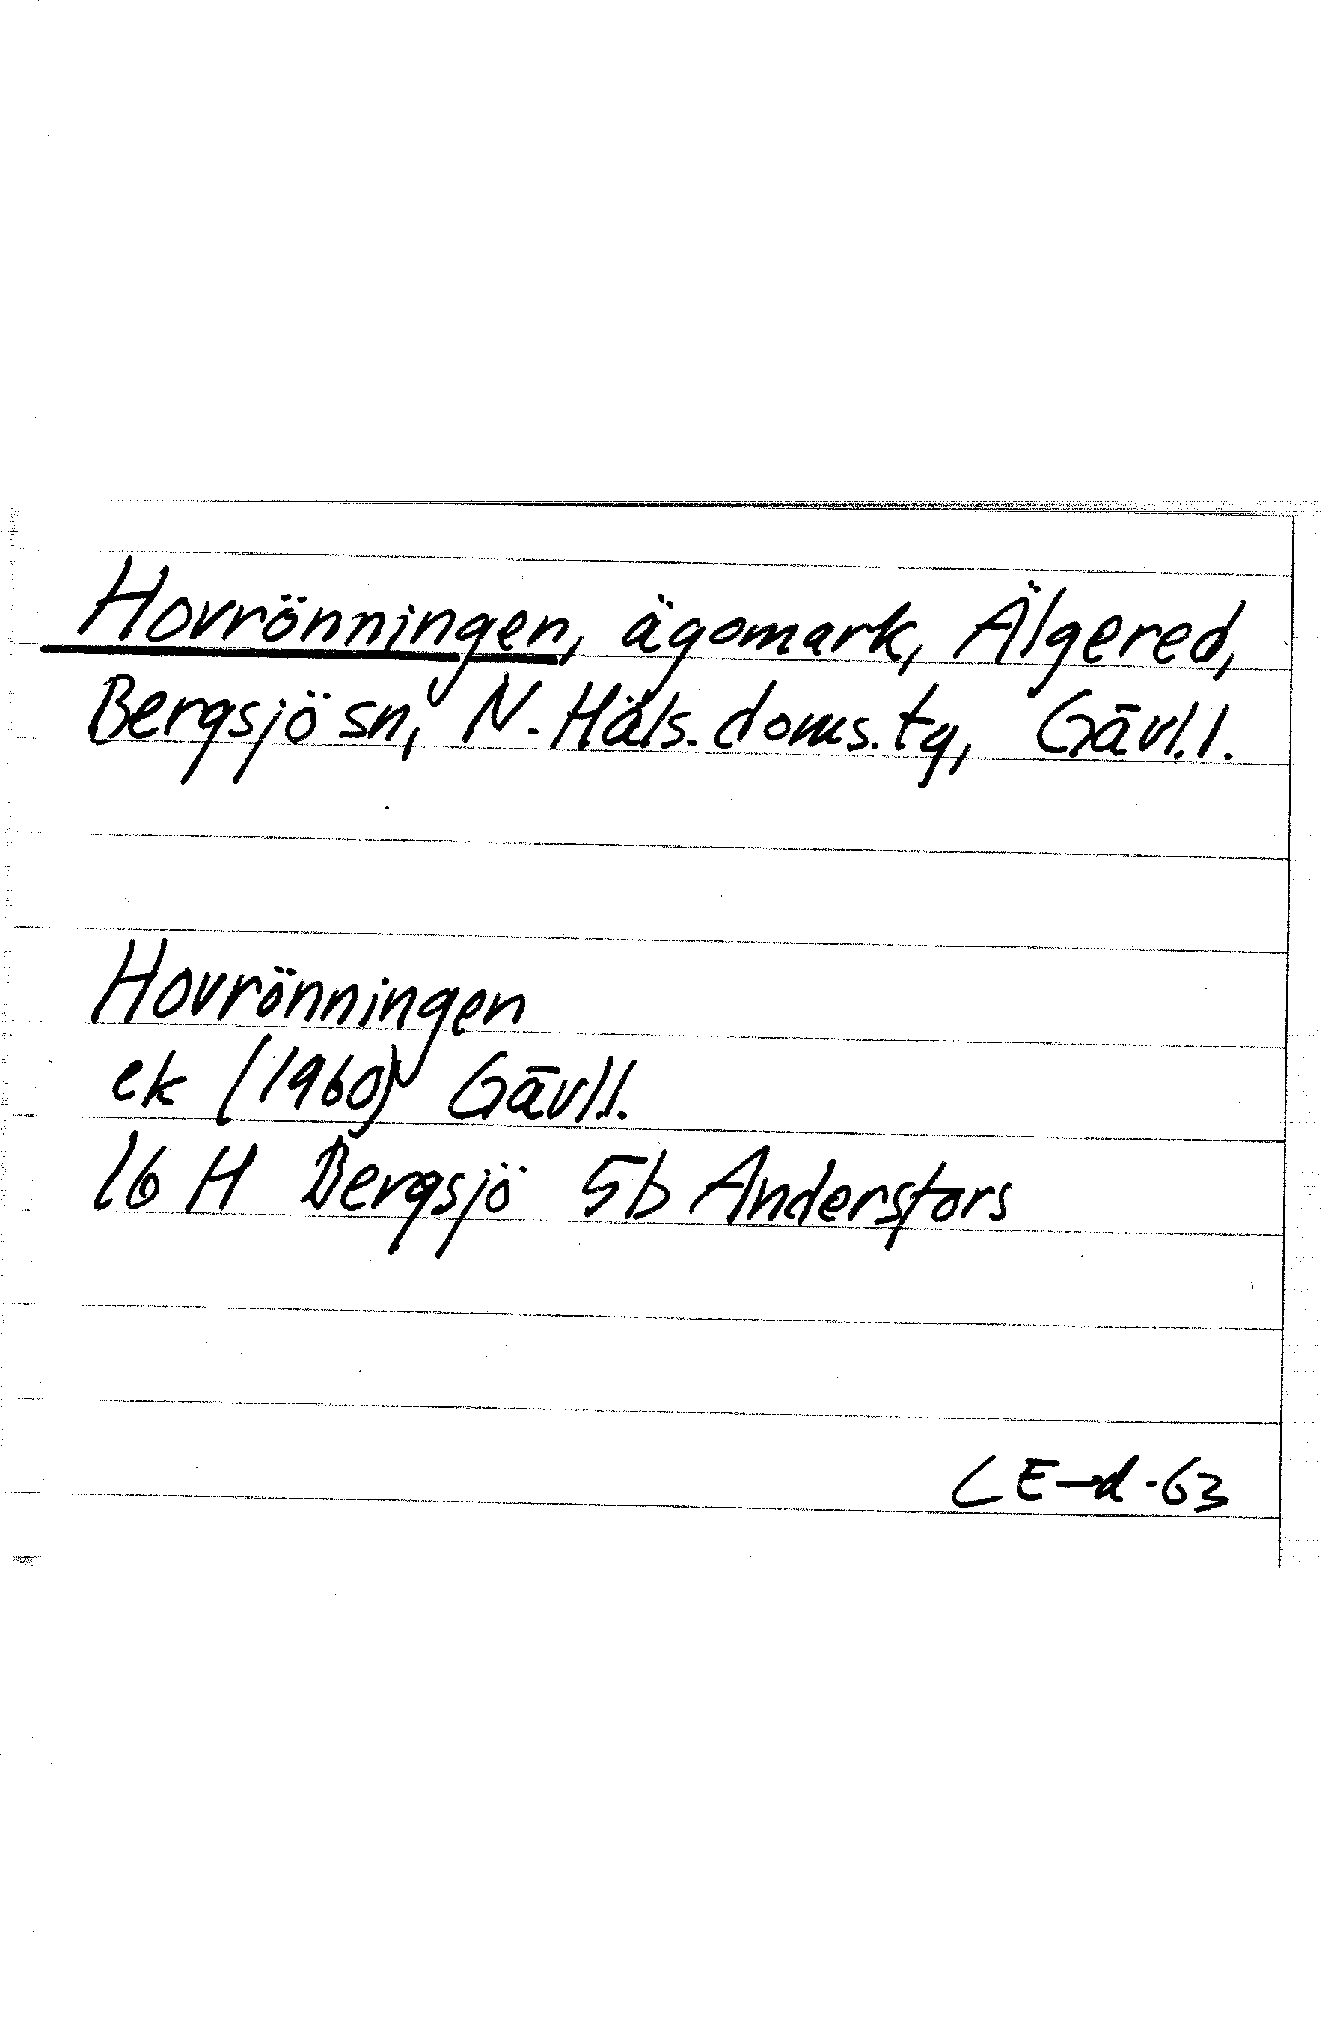 Hovrönningen, ägomark, Älgered,
Bergsjö sn, N. Häls. doms. tg, Gävl. l.
Hovrönningen
ek (1960) Gävl l.
16 H Bergsjö 5b Andersfors
LE-d-63